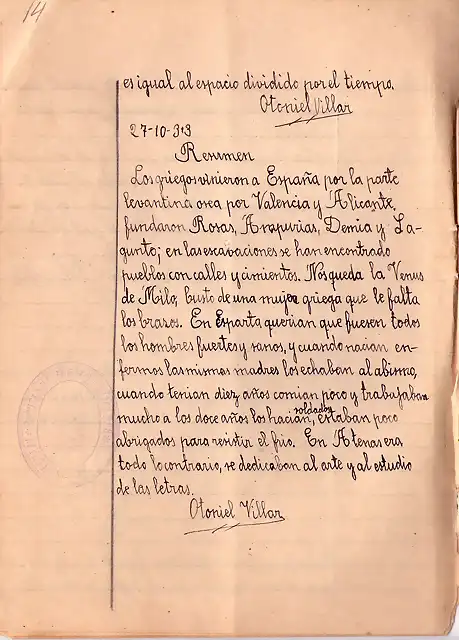 14
es igual al espacio dividido por el tiempo.
Otoniel Villar
27-10-33
Resumen
Los griegos vinieron a España por la parte
levantina osea por Valencia y Alicante,
fundaron Rosas, Ampurias, Demia y Sa-
gunto; en las escavaciones se han encontrado
pueblos con calles y cimientos. Nos queda la Venus
de Milo, busto de una mujer griega que le falta
los brazos. En Esparta querian que fuesen todos
los hombres fuertes y sanos, y cuando nacian en-
fermos las mismas madres los echaban al abismo,
cuando tenian diez años comian poco y trabajaban
mucho a los doce años los hacian soldados, estaban poco
abrigados para resistir el frio. En Atenas era
todo lo contrario, se dedicaban al arte y al estudio
de las letras.
Otoniel Villar